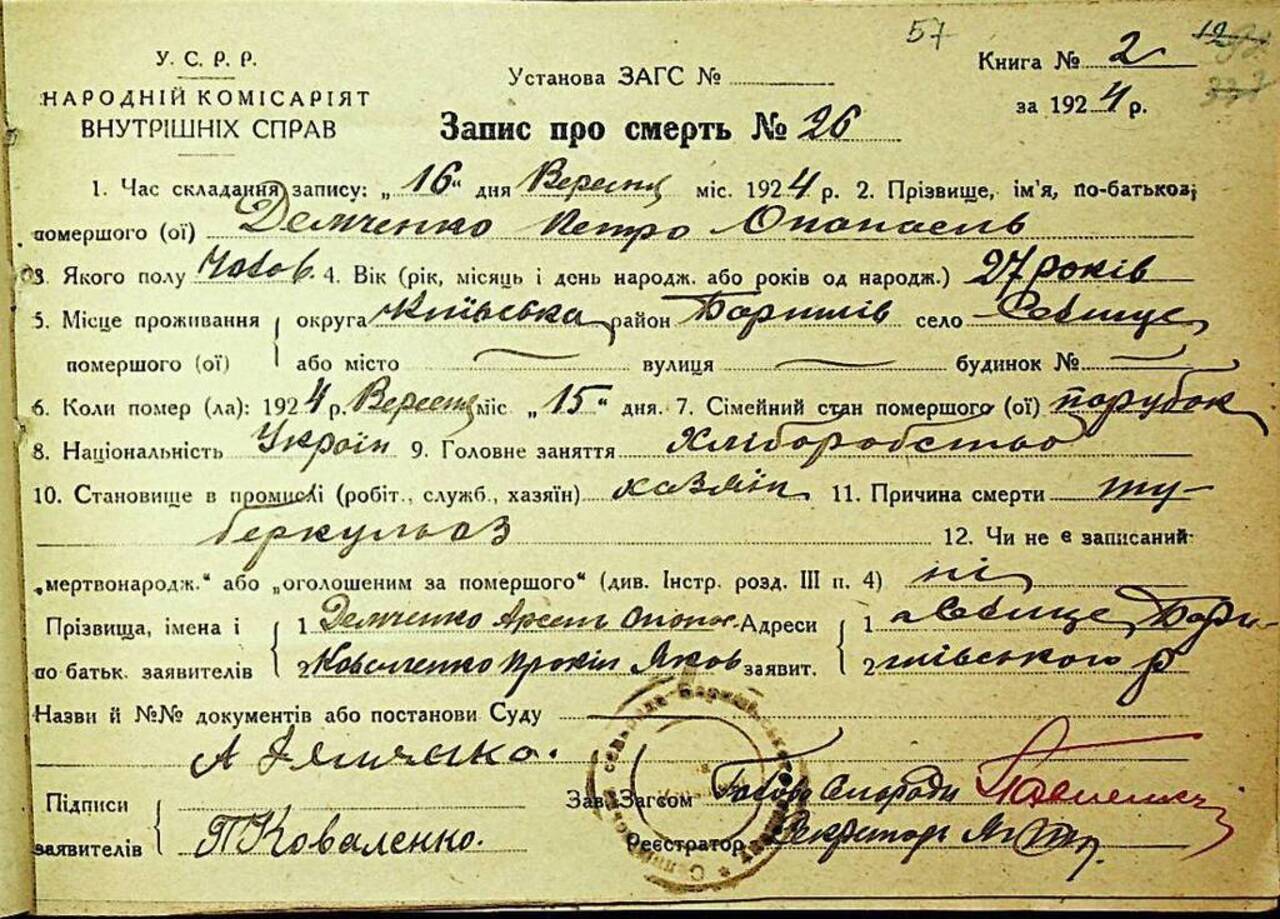 57
У. С. Р. Р.
НАРОДНІЙ КОМІСАРІЯТ
ВНУТРІШНІХ СПРАВ
Установа ЗАГС №
Книга № 2
за 1924 р.
Запис про смерть № 26
1. Час складання запису: „16“ дня Вересня міс. 1924 р. 2. Прізвище, ім'я, по-батькові
помершого (ої) Демченко Петро Опанась
3. Якого полу Чолов. 4. Вік (рік, місяць і день народж. або років од народж.) 27 років
5. Місце проживання округа Київська район Баришів село Селище
помершого (ої) або місто вулиця будинок №
6. Коли помер (ла): 1924 р. Вересня міс „15“ дня. 7. Сімейний стан помершого (ої) парубок
8. Національність Україн 9. Головне заняття Хліборобство
10. Становище в промислі (робіт., служб., хазяїн) хазяїн 11. Причина смерти ту-
беркульоз 12. Чи не є записаний
„мертвонародж.“ або „оголошеним за помершого“ (див. Інстр. розд. III п. 4) ні
Прізвища, імена і 1 Демченко Арсен Опанас. Адреси 1 Селище Бари-
по батьк. заявителів 2 Коваленко Прокіп Яков заявит. 2 шівського р
Назви й №№ документів або постанови Суду
А Демченко.
Підписи
заявителів П Коваленко.
Зав. Загсом Голова Сільради
Реєстратор Секретарь